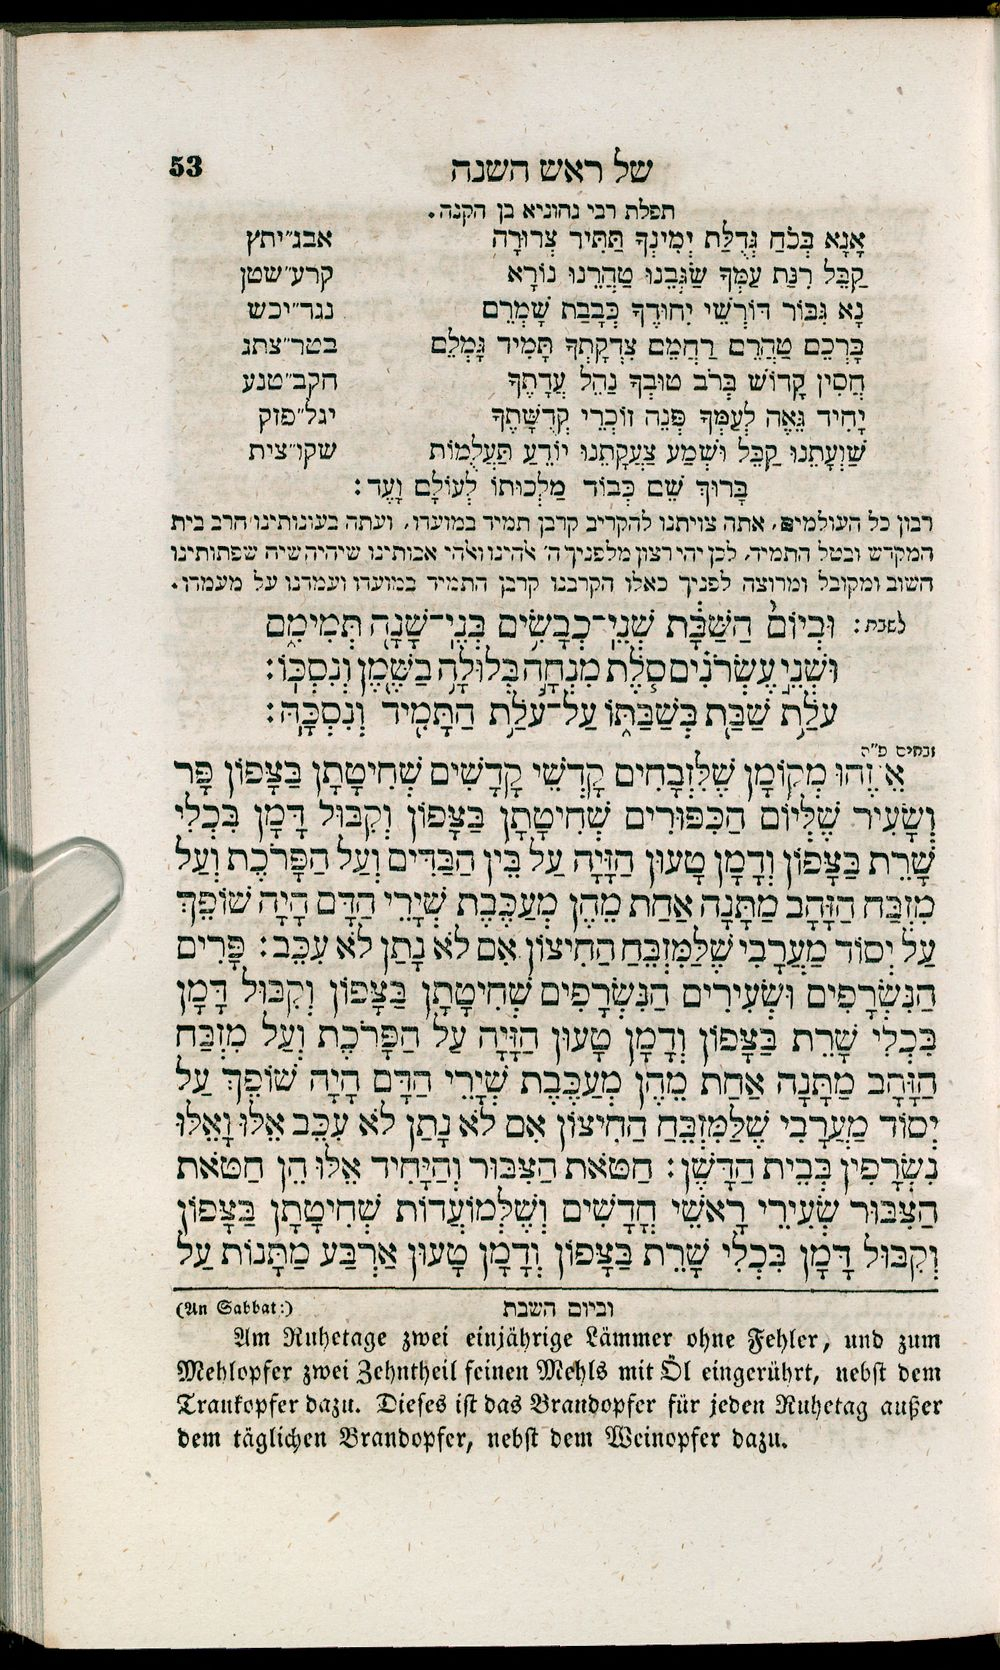 53 של ראש השנה
תפלת רבי נחוניא בן הקנה.
אָנָא בְּכֹחַ גְּדֻלַּת יְמִינְךָ תַּתִּיר צְרוּרָה אבג״יתץ
קַבֵּל רִנַּת עַמְּךָ שַׂגְּבֵנוּ טַהֲרֵנוּ נוֹרָא קרע״שטן
נָא גִּבּוֹר דּוֹרְשֵׁי יִחוּדֶךָ כְּבָבַת שָׁמְרֵם נגד״יכש
בָּרְכֵם טַהֲרֵם רַחֲמֵם צִדְקָתְךָ תָּמִיד גָּמְלֵם בטר״צתג
חֲסִין קָדוֹשׁ בְּרֹב טוּבְךָ נַהֵל עֲדָתֶךָ חקב״טנע
יָחִיד גֵּאֶה לְעַמְּךָ פְּנֵה זוֹכְרֵי קְדֻשָּׁתֶךָ יגל״פזק
שַׁוְעָתֵנוּ קַבֵּל וּשְׁמַע צַעֲקָתֵנוּ יוֹדֵעַ תַּעֲלֻמוֹת שקו״צית
בָּרוּךְ שֵׁם כְּבוֹד מַלְכוּתוֹ לְעוֹלָם וָעֶד:
רבון כל העולמים, אתה צויתנו להקריב קרבן תמיד במועדו, ועתה בעונותינו חרב בית
המקדש ובטל התמיד, לכן יהי רצון מלפניך ה׳ אלהינו ואלהי אבותינו שיהיה שיח שפתותינו
חשוב ומקובל ומרוצה לפניך כאלו הקרבנו קרבן התמיד במועדו ועמדנו על מעמדו.
לשבת: וּבְיוֹם הַשַּׁבָּת שְׁנֵי־כְבָשִׂים בְּנֵי־שָׁנָה תְּמִימִם
וּשְׁנֵי עֶשְׂרֹנִים סֹלֶת מִנְחָה בְּלוּלָה בַשֶּׁמֶן וְנִסְכּוֹ:
עֹלַת שַׁבַּת בְּשַׁבַּתּוֹ עַל־עֹלַת הַתָּמִיד וְנִסְכָּהּ:
זבחים פ״ה
אֵ יזֶהוּ מְקוֹמָן שֶׁלִּזְבָחִים קָדְשֵׁי קָדָשִׁים שְׁחִיטָתָן בַּצָּפוֹן פָּר
וְשָׂעִיר שֶׁלְּיוֹם הַכִּפּוּרִים שְׁחִיטָתָן בַּצָּפוֹן וְקִבּוּל דָּמָן בִּכְלִי
שָׁרֵת בַּצָּפוֹן וְדָמָן טָעוּן הַזָּיָה עַל בֵּין הַבַּדִּים וְעַל הַפָּרֹכֶת וְעַל
מִזְבַּח הַזָּהָב מַתָּנָה אַחַת מֵהֶן מְעַכֶּבֶת שְׁיָרֵי הַדָּם הָיָה שׁוֹפֵךְ
עַל יְסוֹד מַעֲרָבִי שֶׁלַּמִּזְבֵּחַ הַחִיצוֹן אִם לֹא נָתַן לֹא עִכֵּב: פָּרִים
הַנִּשְׂרָפִים וּשְׂעִירִים הַנִּשְׂרָפִים שְׁחִיטָתָן בַּצָּפוֹן וְקִבּוּל דָּמָן
בִּכְלִי שָׁרֵת בַּצָּפוֹן וְדָמָן טָעוּן הַזָּיָה עַל הַפָּרֹכֶת וְעַל מִזְבַּח
הַזָּהָב מַתָּנָה אַחַת מֵהֶן מְעַכֶּבֶת שְׁיָרֵי הַדָּם הָיָה שׁוֹפֵךְ עַל
יְסוֹד מַעֲרָבִי שֶׁלַּמִּזְבֵּחַ הַחִיצוֹן אִם לֹא נָתַן לֹא עִכֵּב אֵלּוּ וָאֵלּוּ
נִשְׂרָפִין בְּבֵית הַדָּשֶׁן: חַטֹּאת הַצִּבּוּר וְהַיָּחִיד אֵלּוּ הֵן חַטֹּאת
הַצִּבּוּר שְׂעִירֵי רָאשֵׁי חֳדָשִׁים וְשֶׁלְּמוֹעֲדוֹת שְׁחִיטָתָן בַּצָּפוֹן
וְקִבּוּל דָּמָן בִּכְלִי שָׁרֵת בַּצָּפוֹן וְדָמָן טָעוּן אַרְבַּע מַתָּנוֹת עַל
(An Sabbat:) וביום השבת
Am Ruhetage zwei einjährige Lämmer ohne Fehler, und zum
Mehlopfer zwei Zehntheil feinen Mehls mit Öl eingerührt, nebst dem
Trankopfer dazu. Dieses ist das Brandopfer für jeden Ruhetag außer
dem täglichen Brandopfer, nebst dem Weinopfer dazu.